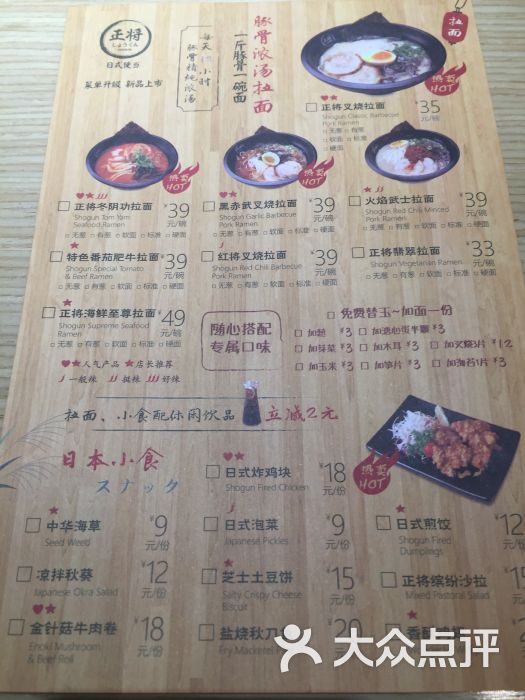 正将
しょうくん
日式便当
菜单升级 新品上市
每天12小时
豚骨精炖浓汤
豚骨浓汤拉面
一斤豚骨一碗面
拉面
热卖HOT
正将叉烧拉面
¥35元/碗
Shogun Classic Barbecue
Pork Ramen
□无葱 □有葱
□软面 □标准
□硬面
热卖HOT
热卖HOT
正将冬阴功拉面 ¥39元/碗
Shogun Tom Yam
Seafood Ramen
□无葱 □有葱 □软面 □标准 □硬面
黑赤武叉烧拉面 ¥39元/碗
Shogun Garlic Barbecue
Pork Ramen
□无葱 □有葱 □软面 □标准 □硬面
火焰武士拉面 ¥39元/碗
Shogun Red Chili Minced
Pork Ramen
□无葱 □有葱 □软面 □标准 □硬面
特色番茄肥牛拉面 ¥39元/碗
Shogun Special Tomato
& Beef Ramen
□无葱 □有葱 □软面 □标准 □硬面
红将叉烧拉面 ¥39元/碗
Shogun Red Chili Barbecue
Pork Ramen
□无葱 □有葱 □软面 □标准 □硬面
正将翡翠拉面 ¥33元/碗
Shogun Vegetarian Ramen
□无葱 □有葱 □软面 □标准 □硬面
正将海鲜至尊拉面 ¥49元/碗
Shogun Supreme Seafood
Ramen
□无葱 □有葱 □软面 □标准 □硬面
♥人气产品 ★店长推荐
一般辣 挺辣 好辣
随心搭配
专属口味
免费替玉~加面一份
□加葱 ¥3 □加溏心蛋半颗 ¥3
□加芽菜 ¥3 □加木耳 ¥3 □加叉烧3片 ¥12
□加玉米 ¥3 □加笋片 ¥3 □加海苔1片 ¥3
拉面、小食配休闲饮品 立减2元
热卖HOT
日本小食
スナック
日式炸鸡块 ¥18元/份
Shogun Fired Chicken
中华海草 ¥9元/份
Seed Weed
日式泡菜 ¥9元/份
Japanese Pickles
日式煎饺 ¥12元/份
Shogun Fired
Dumplings
凉拌秋葵 ¥12元/份
Japanese Okra Salad
芝士土豆饼 ¥15元/份
Salty Crispy Cheese
Biscuit
正将缤纷沙拉 ¥15元/份
Mixed Pastoral Salad
金针菇牛肉卷 ¥18元/份
Enoki Mushroom
& Beef Roll
盐烧秋刀
Fry Mackerel
¥20
香酥
大众点评